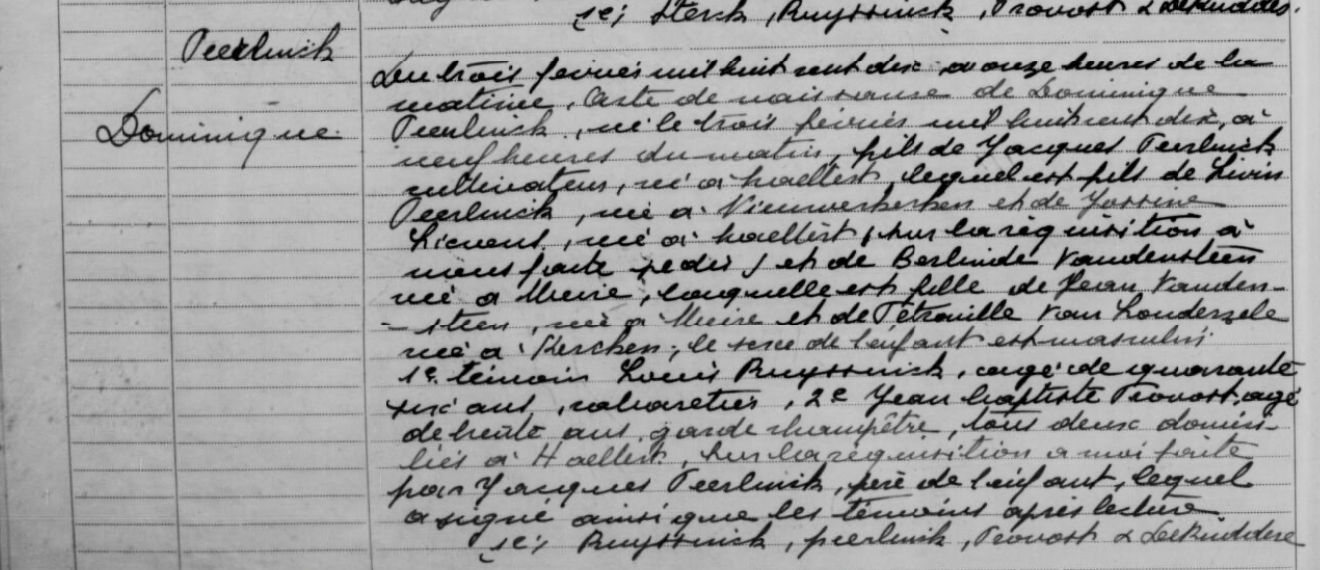 sc; Sterck, Ruyssinck, Provost & DeKudder.
Peerlinck
Du trois fevrier mil huit cent dix a onze heures de la
matinée, Acte de naissance de Dominique
Dominique
Peerlinck, né le trois février mil huit cent dix, à
neuf heures du matin, fils de Jacques Peerlinck
cultivateur, né à haeltert, lequel est fils de Livin
Peerlinck, né a Nieuwerkerken et de Jossine
Lievens, née à haeltert, sur la réquisition à
nous faite et de Berlinde Vandensteen
née a Meire, laquelle est fille de Jean Vanden-
- steen, né a Meire et de Pétronille Van Londerzele
née a Kerchen; le sexe de l'enfant est masculin
1e. témoin Louis Ruyssinck, agé de quarante
six ans, cabaretier, 2e Jean baptiste Provost, agé
de trente ans, garde champêtre, tous deux domici-
liés à Haeltert, sur la réquisition a moi faite
par Jacques Peerlinck, père de l'enfant, lequel
a signé ainsi que les témoins après lecture
sc; Ruyssinck, peerlinck, Provost & DeKuddere